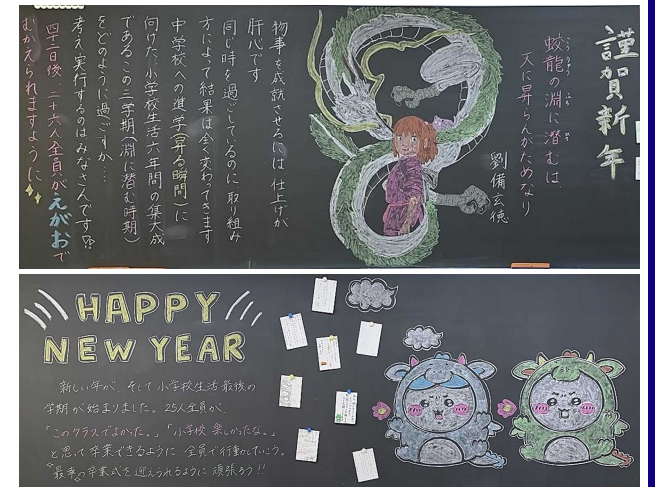 謹賀新年
蛟龍の淵に潜むは、
天に昇らんがためなり
劉備玄徳
物事を成就させるには仕上げが
肝心です
同じ時を過ごしているのに取り組み
方によって結果は全く変わってきます
中学校への進学(昇る瞬間)に
向けた、小学校生活六年間の集大成
であるこの三学期(淵に潜む時期)
をどのように過ごすか…
考え、実行するのはみなさんです!!
四十二日後、二十六人全員がえがおで
むかえられますように
HAPPY
NEW YEAR
新しい年が、そして小学校生活最後の
学期が始まりました。25人全員が、
「このクラスでよかった。」「小学校楽しかったな。」
と思って卒業できるように、全員で行動していこう。
最幸の卒業式を迎えられるように頑張ろう!!